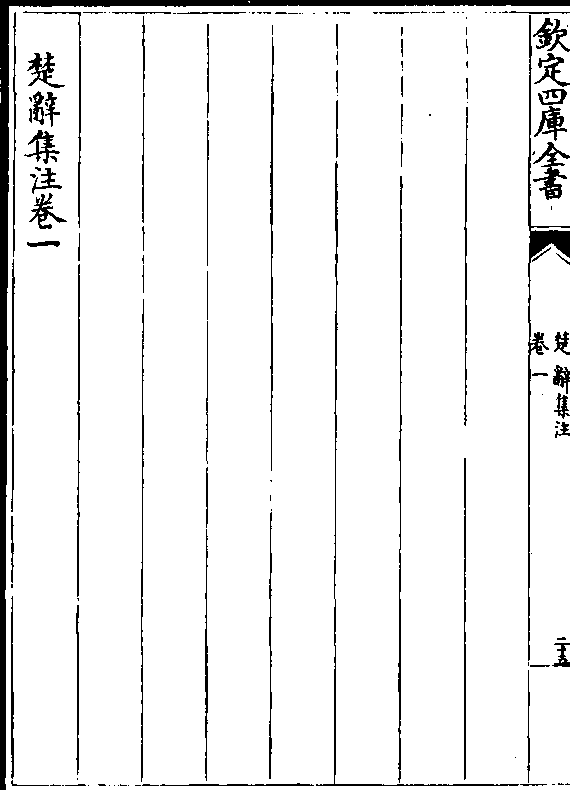 欽定四庫全書
楚辭集注
卷一
二十五
楚辭集注卷一